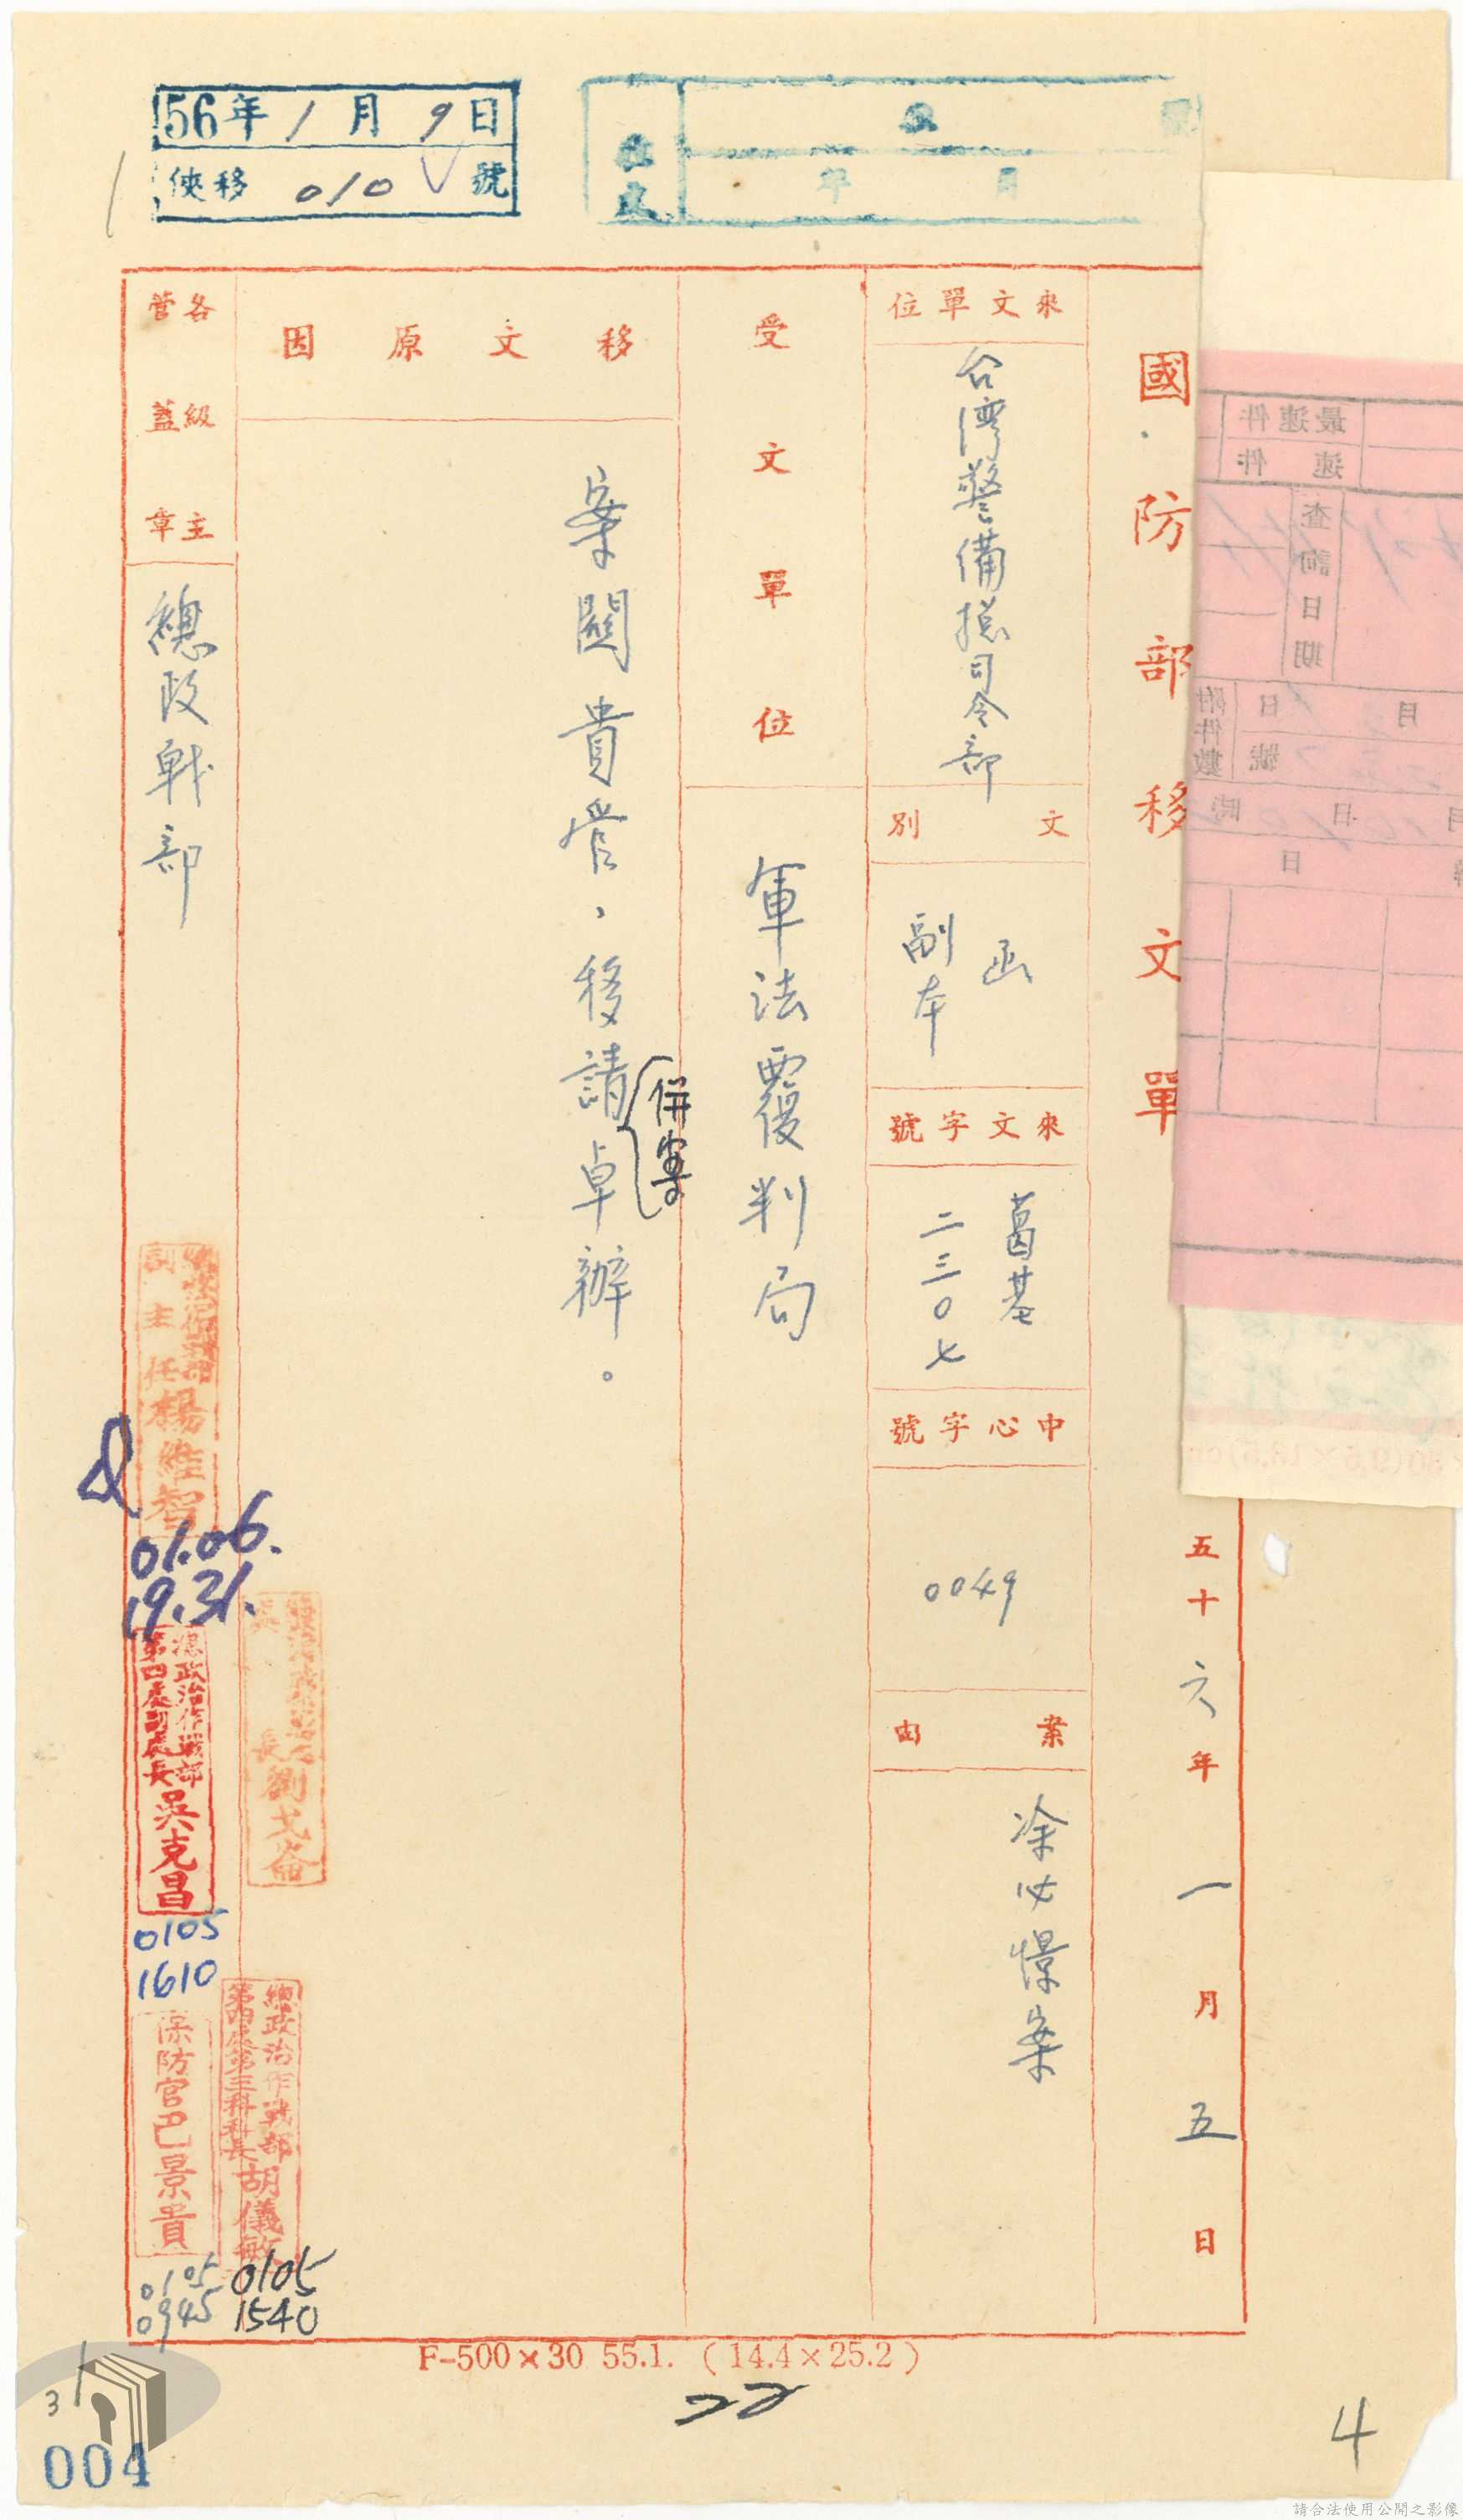 56年1月9日
俠移 010 號
年 月
國防部移文單
五十六年一月五日
來文單位
台灣警備總司令部
文別
函
副本
來文字號
葛基
二三〇七
中心字號
0049
案由
涂必憬案
受文單位
軍法覆判局
移文原因
案關貴管，移請卓辦。
併案
各級主
管蓋章
總政戰部
副主任楊維智
01.06.
19.31.
長劉戈崙
總政治作戰部
第四處副處長吳克昌
0105
1610
總政治作戰部
第四處第三科科長胡儀敏
0105
1540
保防官巴景貴
0105
0945
最速件
速件
查詢日期
月 日
號
附件數
月 日 時
日
F-500×30 55.1. (14.4×25.2)
22
31
004
4
請合法使用公開之影像